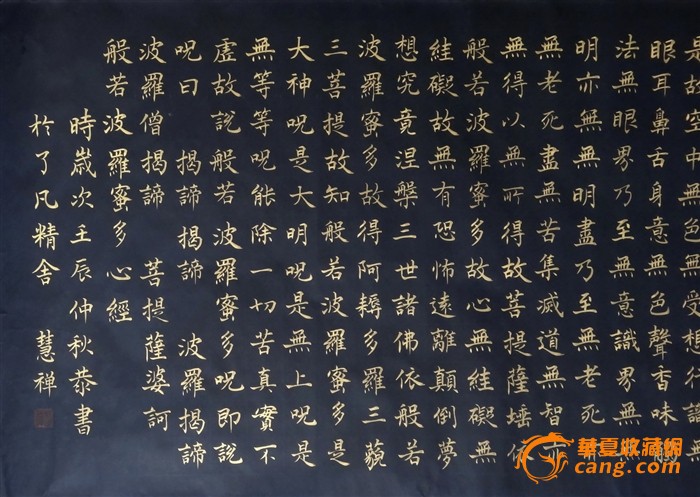 是故空中無色無受想行識無
眼耳鼻舌身意無色聲香味觸
法無眼界乃至無意識界無無
明亦無無明盡乃至無老死亦
無老死盡無苦集滅道無智亦
無得以無所得故菩提薩埵依
般若波羅蜜多故心無絓礙無
絓礙故無有恐怖遠離顛倒夢
想究竟涅槃三世諸佛依般若
波羅蜜多故得阿耨多羅三藐
三菩提故知般若波羅蜜多是
大神呪是大明呪是無上呪是
無等等呪能除一切苦真實不
虛故說般若波羅蜜多呪即說
呪曰 揭諦揭諦 波羅揭諦
波羅僧揭諦 菩提薩婆訶
般若波羅蜜多心經
時歲次壬辰仲秋恭書
於了凡精舍 慧禪
華夏收藏網
cang.com